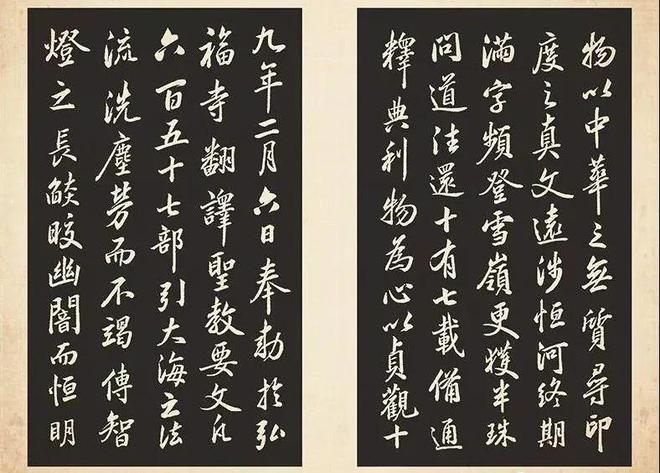 物以中華之無質尋印
度之真文遠涉恒河終期
滿字頻登雪嶺更獲半珠
問道往還十有七載備通
釋典利物為心以貞觀十
九年二月六日奉勅於弘
福寺翻譯聖教要文凡
六百五十七部引大海之法
流洗塵勞而不竭傳智
燈之長焰皎幽闇而恒明